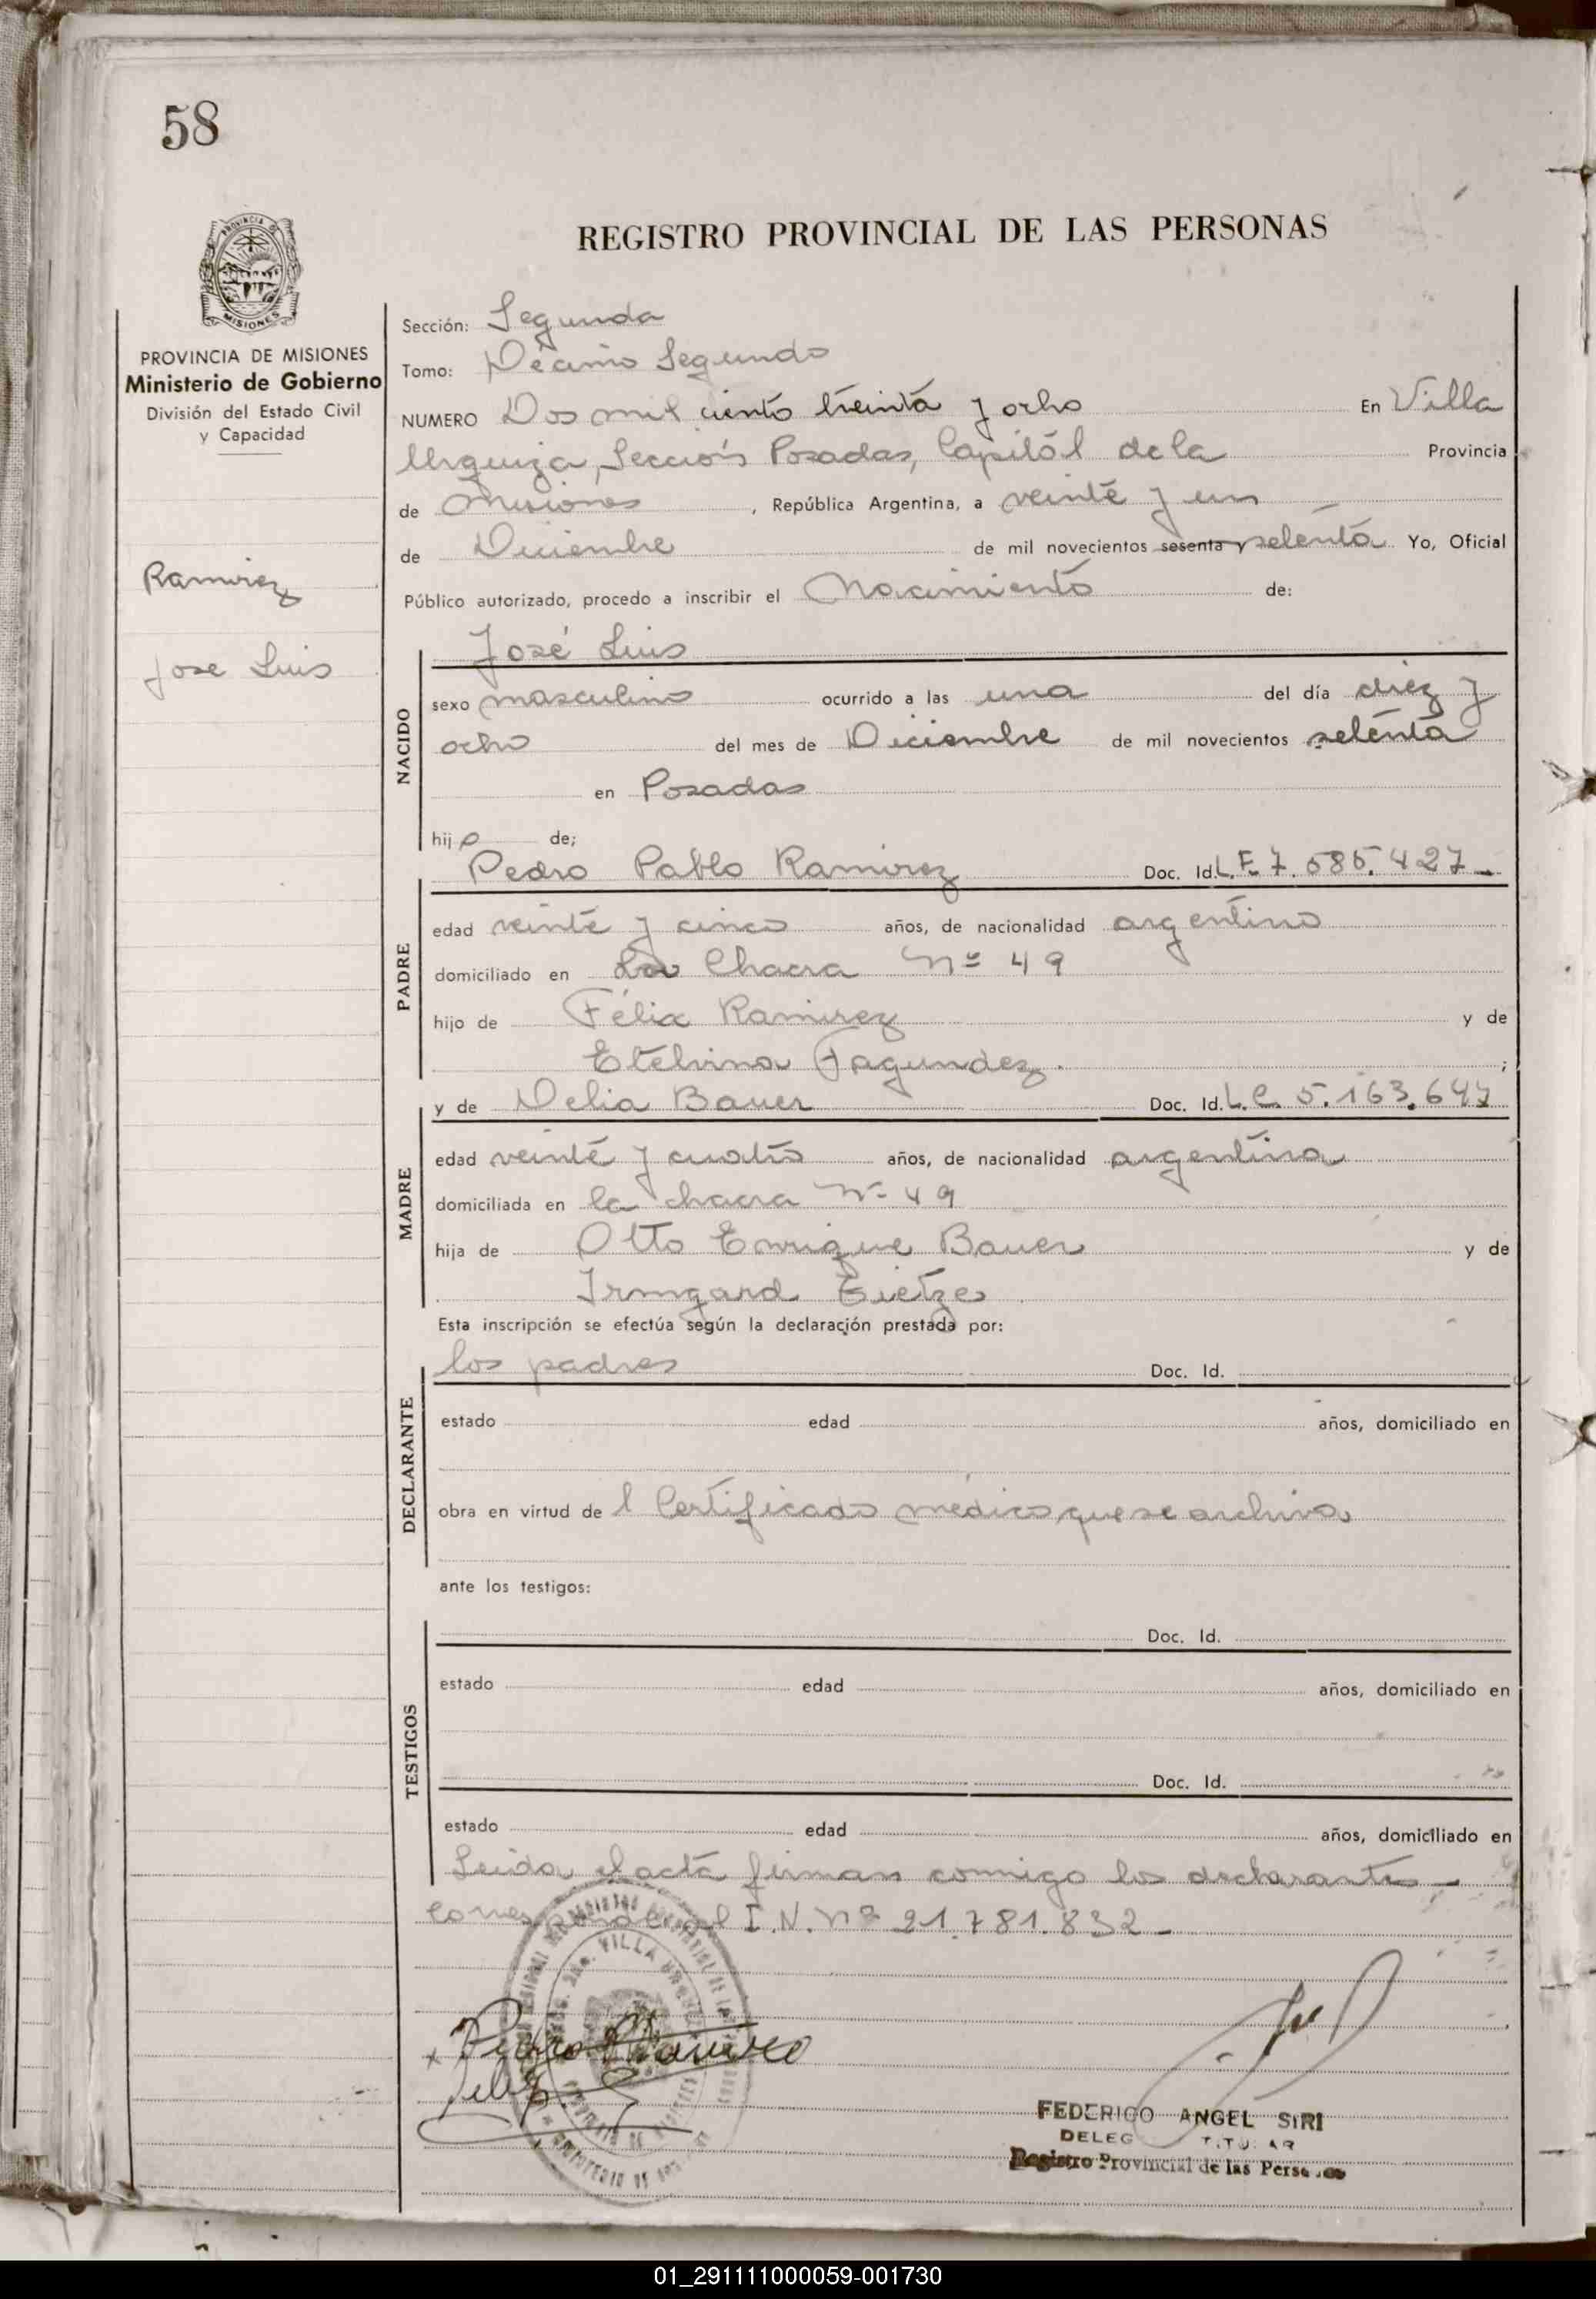 58
REGISTRO PROVINCIAL DE LAS PERSONAS
PROVINCIA
MISIONES
PROVINCIA DE MISIONES
Ministerio de Gobierno
División del Estado Civil
y Capacidad
Ramirez
Jose Luis
Sección: Segunda
Tomo: Décimo Segundo
NUMERO Dos mil ciento treinta y ocho En Villa
Urquiza, Sección Posadas, Capitál de la Provincia
de Misiones, República Argentina, a veinte y un
de Diciembre de mil novecientos sesenta y setenta Yo, Oficial
Público autorizado, procedo a inscribir el Nacimiento de:
José Luis
NACIDO
sexo masculino ocurrido a las una del día diez y
ocho del mes de Diciembre de mil novecientos setenta
en Posadas
hijo de;
Pedro Pablo Ramirez Doc. Id. L.E. 7.585.427-
PADRE
edad veinte y cinco años, de nacionalidad argentino
domiciliado en La Chacra Nº 49
hijo de Félix Ramirez y de
Etelvina Fagundez.;
y de Delia Bauer Doc. Id. L.C. 5.163.647
MADRE
edad veinte y cuatro años, de nacionalidad argentina
domiciliada en la chacra Nº 49
hija de Otto Enrique Bauer y de
Irmgard Tietze.
Esta inscripción se efectúa según la declaración prestada por:
los padres Doc. Id.
DECLARANTE
estado edad años, domiciliado en
obra en virtud del Certificado médico que se archiva
ante los testigos:
Doc. Id.
TESTIGOS
estado edad años, domiciliado en
Doc. Id.
estado edad años, domiciliado en
Leida el acta firman conmigo los declarantes-
Corresponde al I.N. Nº 21.781.832-
VILLA URQUIZA
Pedro Ramirez
FEDERICO ANGEL SIRI
DELEG TITULAR
Registro Provincial de las Personas
01_291111000059-001730